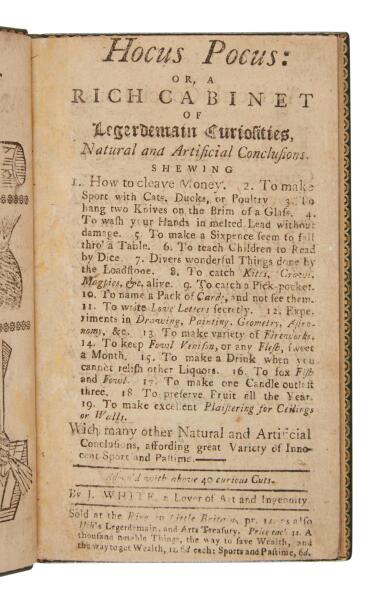 Hocus Pocus:
OR, A
RICH CABINET
OF
Legerdemain Curiosities,
Natural and Artificial Conclusions.
SHEWING
1. How to cleave Money. 2. To make
Sport with Cats, Ducks, or Poultry 3. To
hang two Knives on the Brim of a Glass. 4.
To wash your Hands in melted Lead without
damage. 5. To make a Sixpence seem to fall
thro' a Table. 6. To teach Children to Read
by Dice. 7. Divers wonderful Things done by
the Loadstone. 8. To catch Kites, Crows,
Magpies, &c. alive. 9. To catch a Pick-pocket.
10. To name a Pack of Cards, and not see them.
11. To write Love Letters secretly. 12. Expe-
riments in Drawing, Painting, Geometry, Astro-
nomy, &c. 13. To make variety of Fireworks.
14. To keep Fowl Venison, or any Flesh, sweet
a Month. 15. To make a Drink when you
cannot relish other Liquors. 16. To fox Fish
and Fowl. 17. To make one Candle outlast
three. 18 To preserve Fruit all the Year.
19. To make excellent Plaistering for Ceilings
or Walls.
With many other Natural and Artificial
Conclusions, affording great Variety of Inno-
cent Sport and Pastime.
Adorn'd with above 40 curious Cuts.
By J. WHITE, a Lover of Art and Ingenuity.
Sold at the in Little Britain, pr. 1s. as also
Hill's Legerdemain, and Arts Treasury. Price each 1s. A
thousand notable Things, the way to save Wealth, and
the way to get Wealth, 1s. 6d each: Sports and Pastime, 6d.